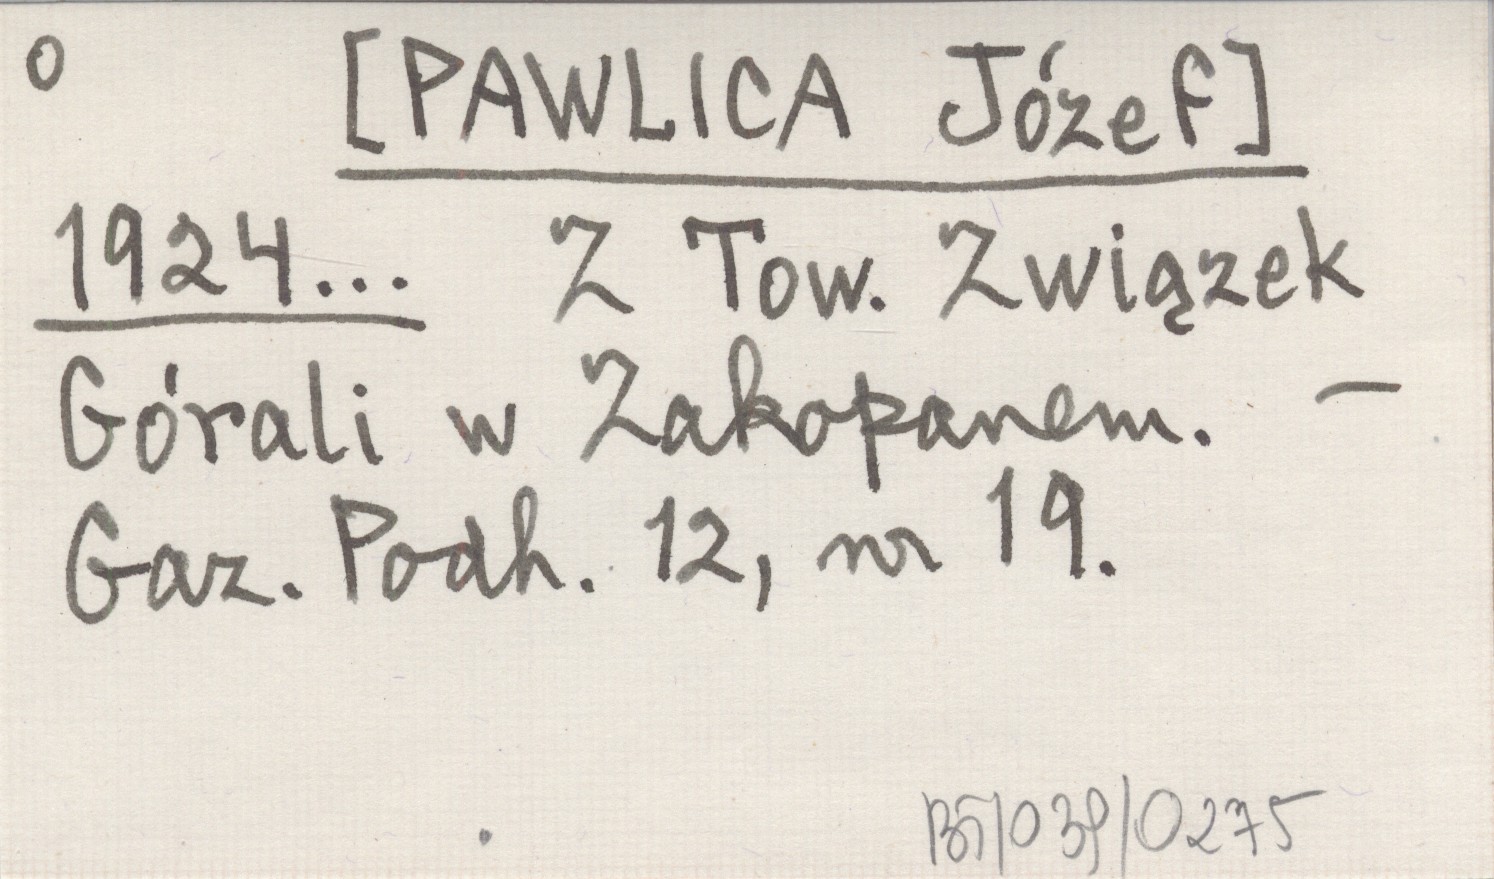 o [PAWLICA Józef]
1924... Z Tow. Związek
Górali w Zakopanem. –
Gaz. Podh. 12, nr 19.
0275